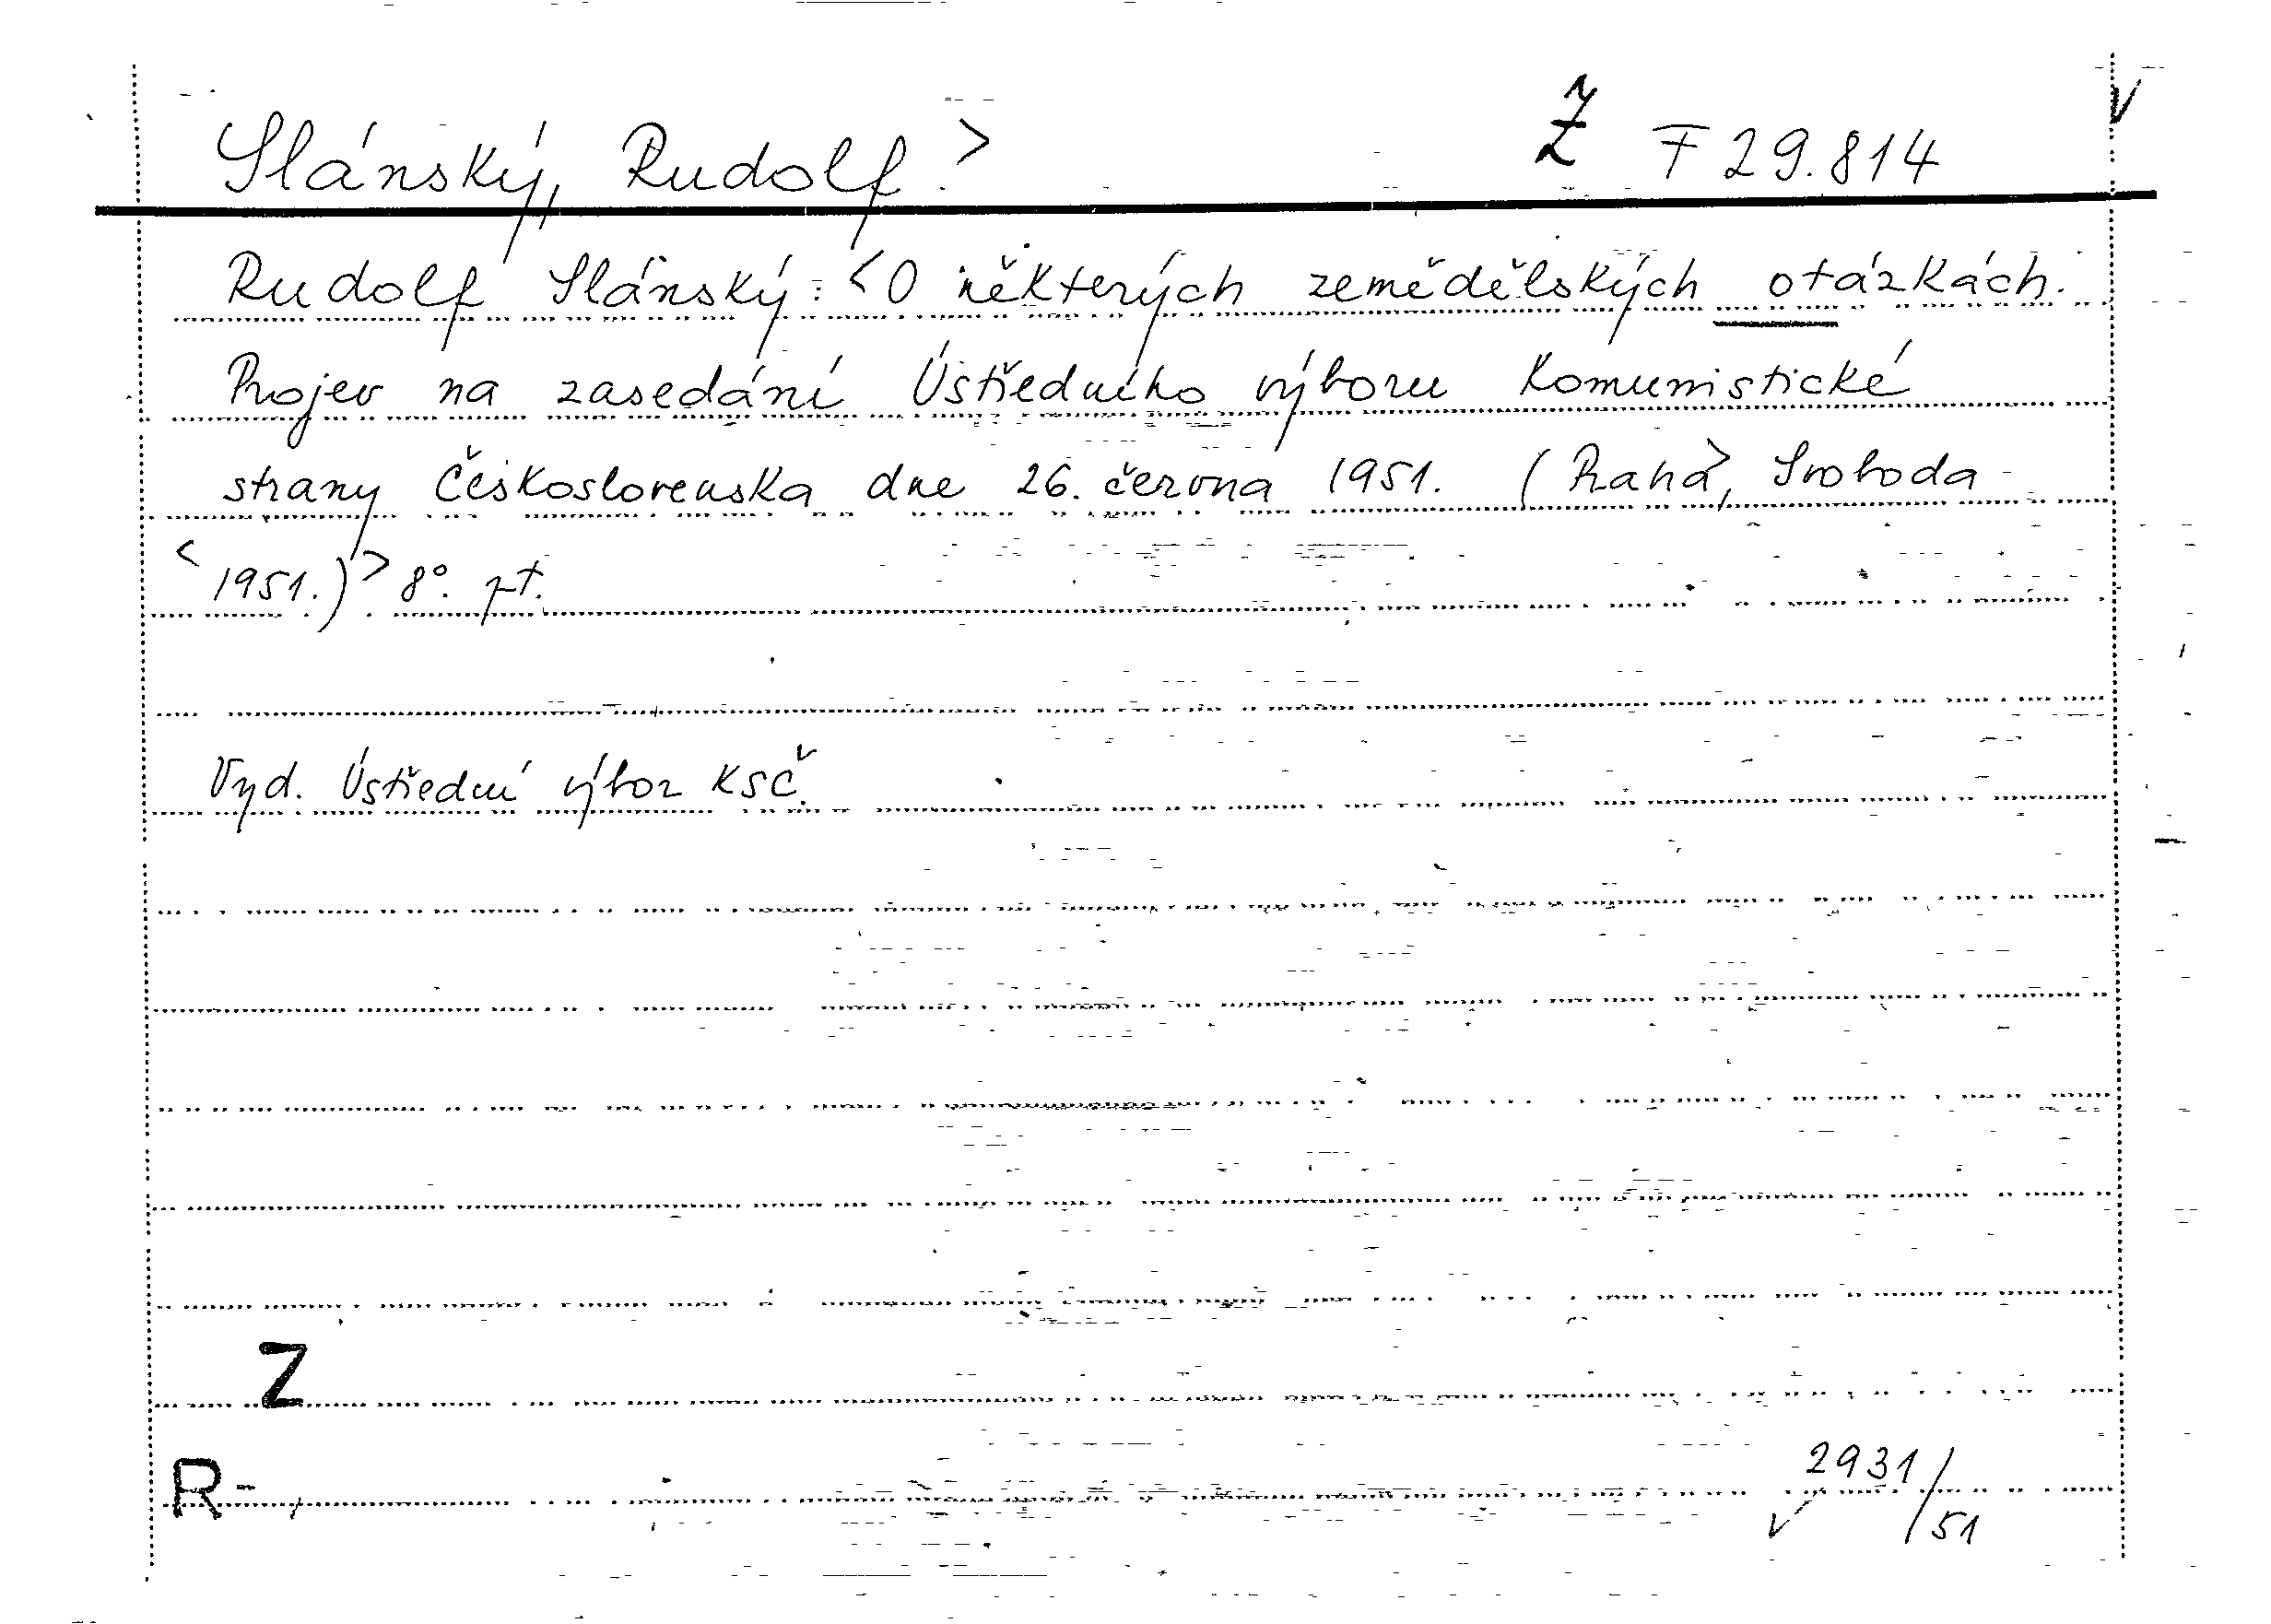 Slánský, Rudolf > Ž F 29.814
Rudolf Slánský: <O některých zemědělských otázkách.
Projev na zasedání Ústředního výboru Komunistické
strany Československa dne 26. června 1951. (Praha>, Svoboda
<1951.)> 8°. pt.
Vyd. Ústřední výbor KSČ.
Z
R-
2931/51